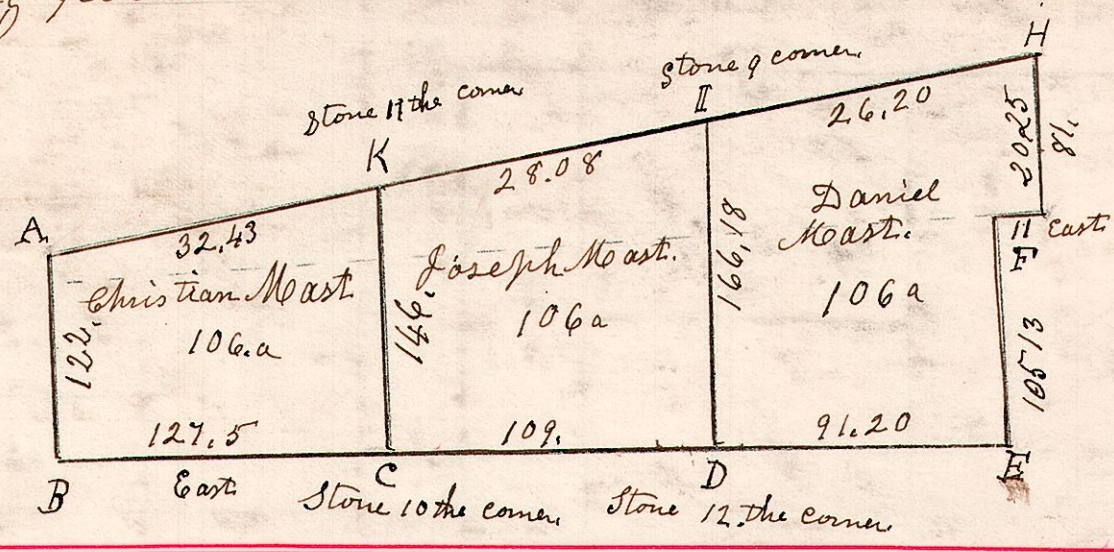 H
Stone 9 corner.
Stone 11 the corner
I
26,20
K
28.08
2025
81,
A
32,43
Daniel
Mast.
11 East
F
Christian Mast
Joseph Mast.
166,18
106.a
106a
106a
122,
146,
10513
127,5
109.
91.20
B
East
C
D
E
Stone 10 the corner,
Stone 12. the corner.